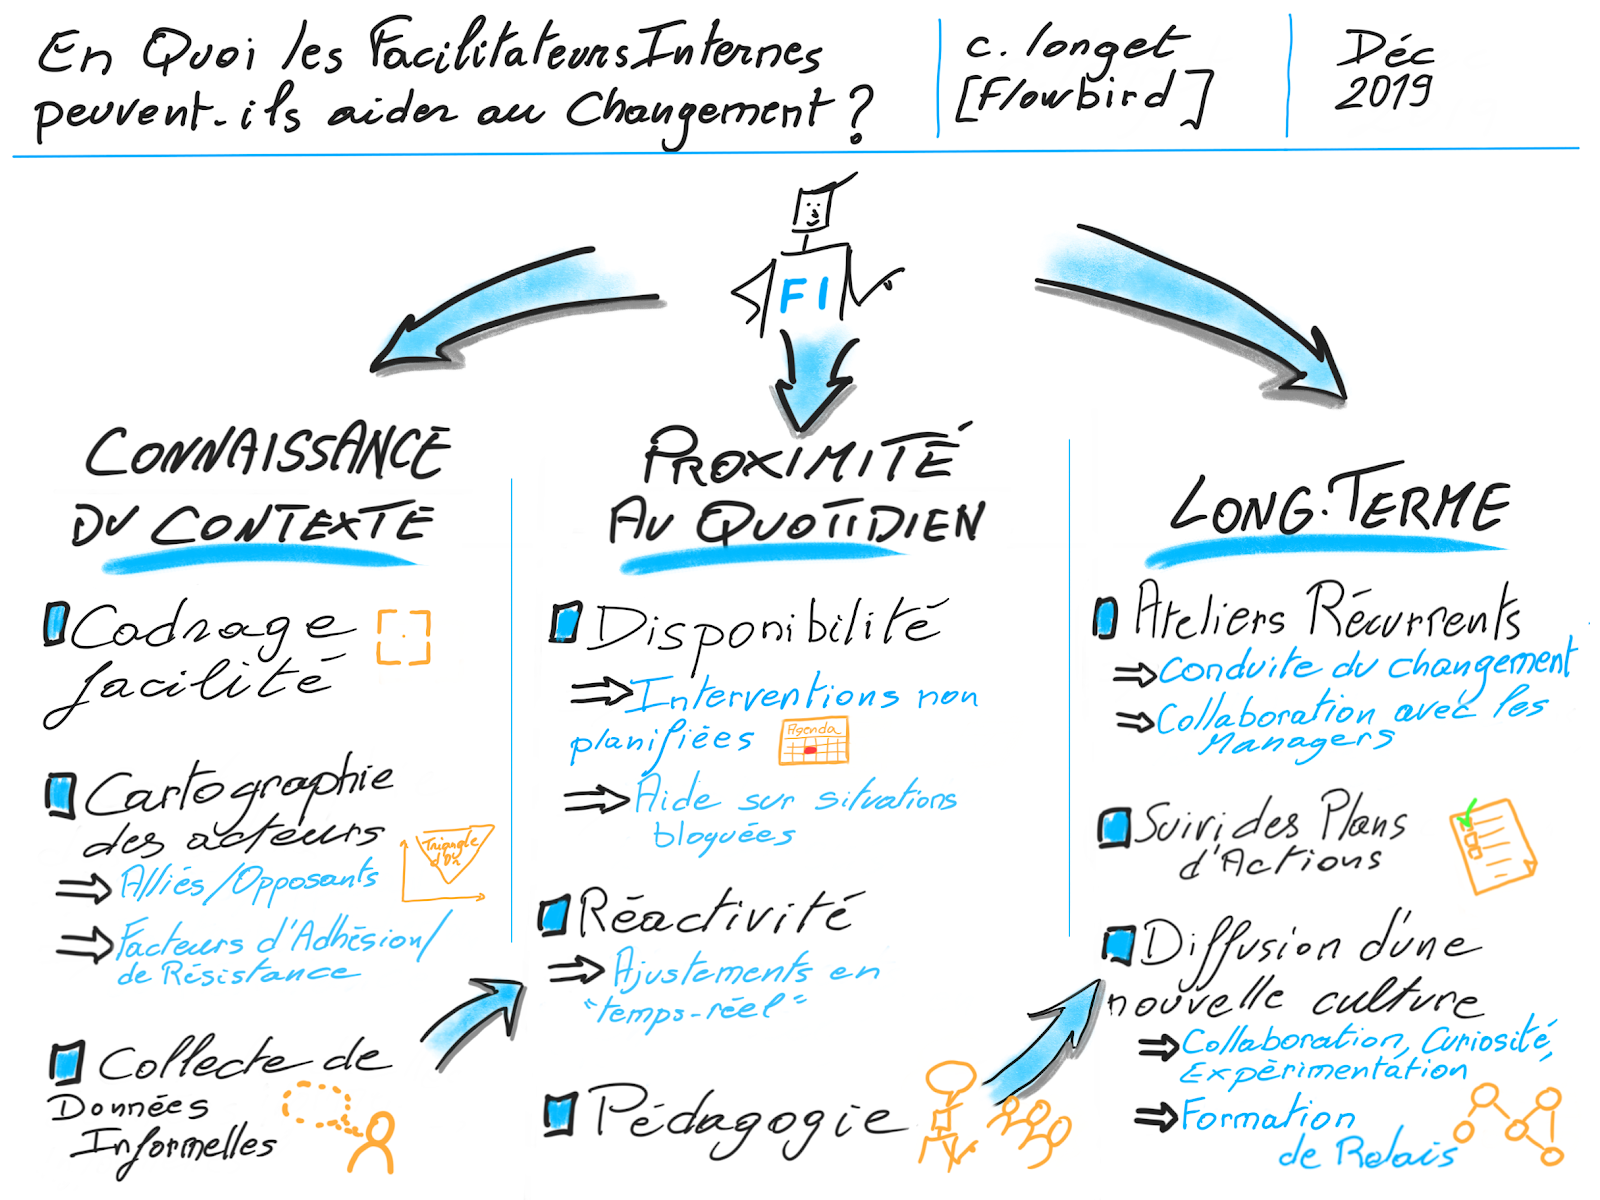 En Quoi les Facilitateurs Internes
peuvent-ils aider au Changement ?
c. longet
[Flowbird]
Déc
2019
FI
CONNAISSANCE
DU CONTEXTE
Cadrage
facilité
Cartographie
des acteurs
⇒ Alliés/Opposants
⇒ Facteurs d'Adhésion/
de Résistance
Triangle
d'Or
Collecte de
Données
Informelles
PROXIMITÉ
AU QUOTIDIEN
Disponibilité
⇒ Interventions non
planifiées
Agenda
⇒ Aide sur situations
bloquées
Réactivité
⇒ Ajustements en
"temps-réel"
Pédagogie
LONG-TERME
Ateliers Récurrents
⇒ Conduite du changement
⇒ Collaboration avec les
Managers
Suivi des Plans
d'Actions
Diffusion d'une
nouvelle culture
⇒ Collaboration, Curiosité,
Expérimentation
⇒ Formation
de Relais